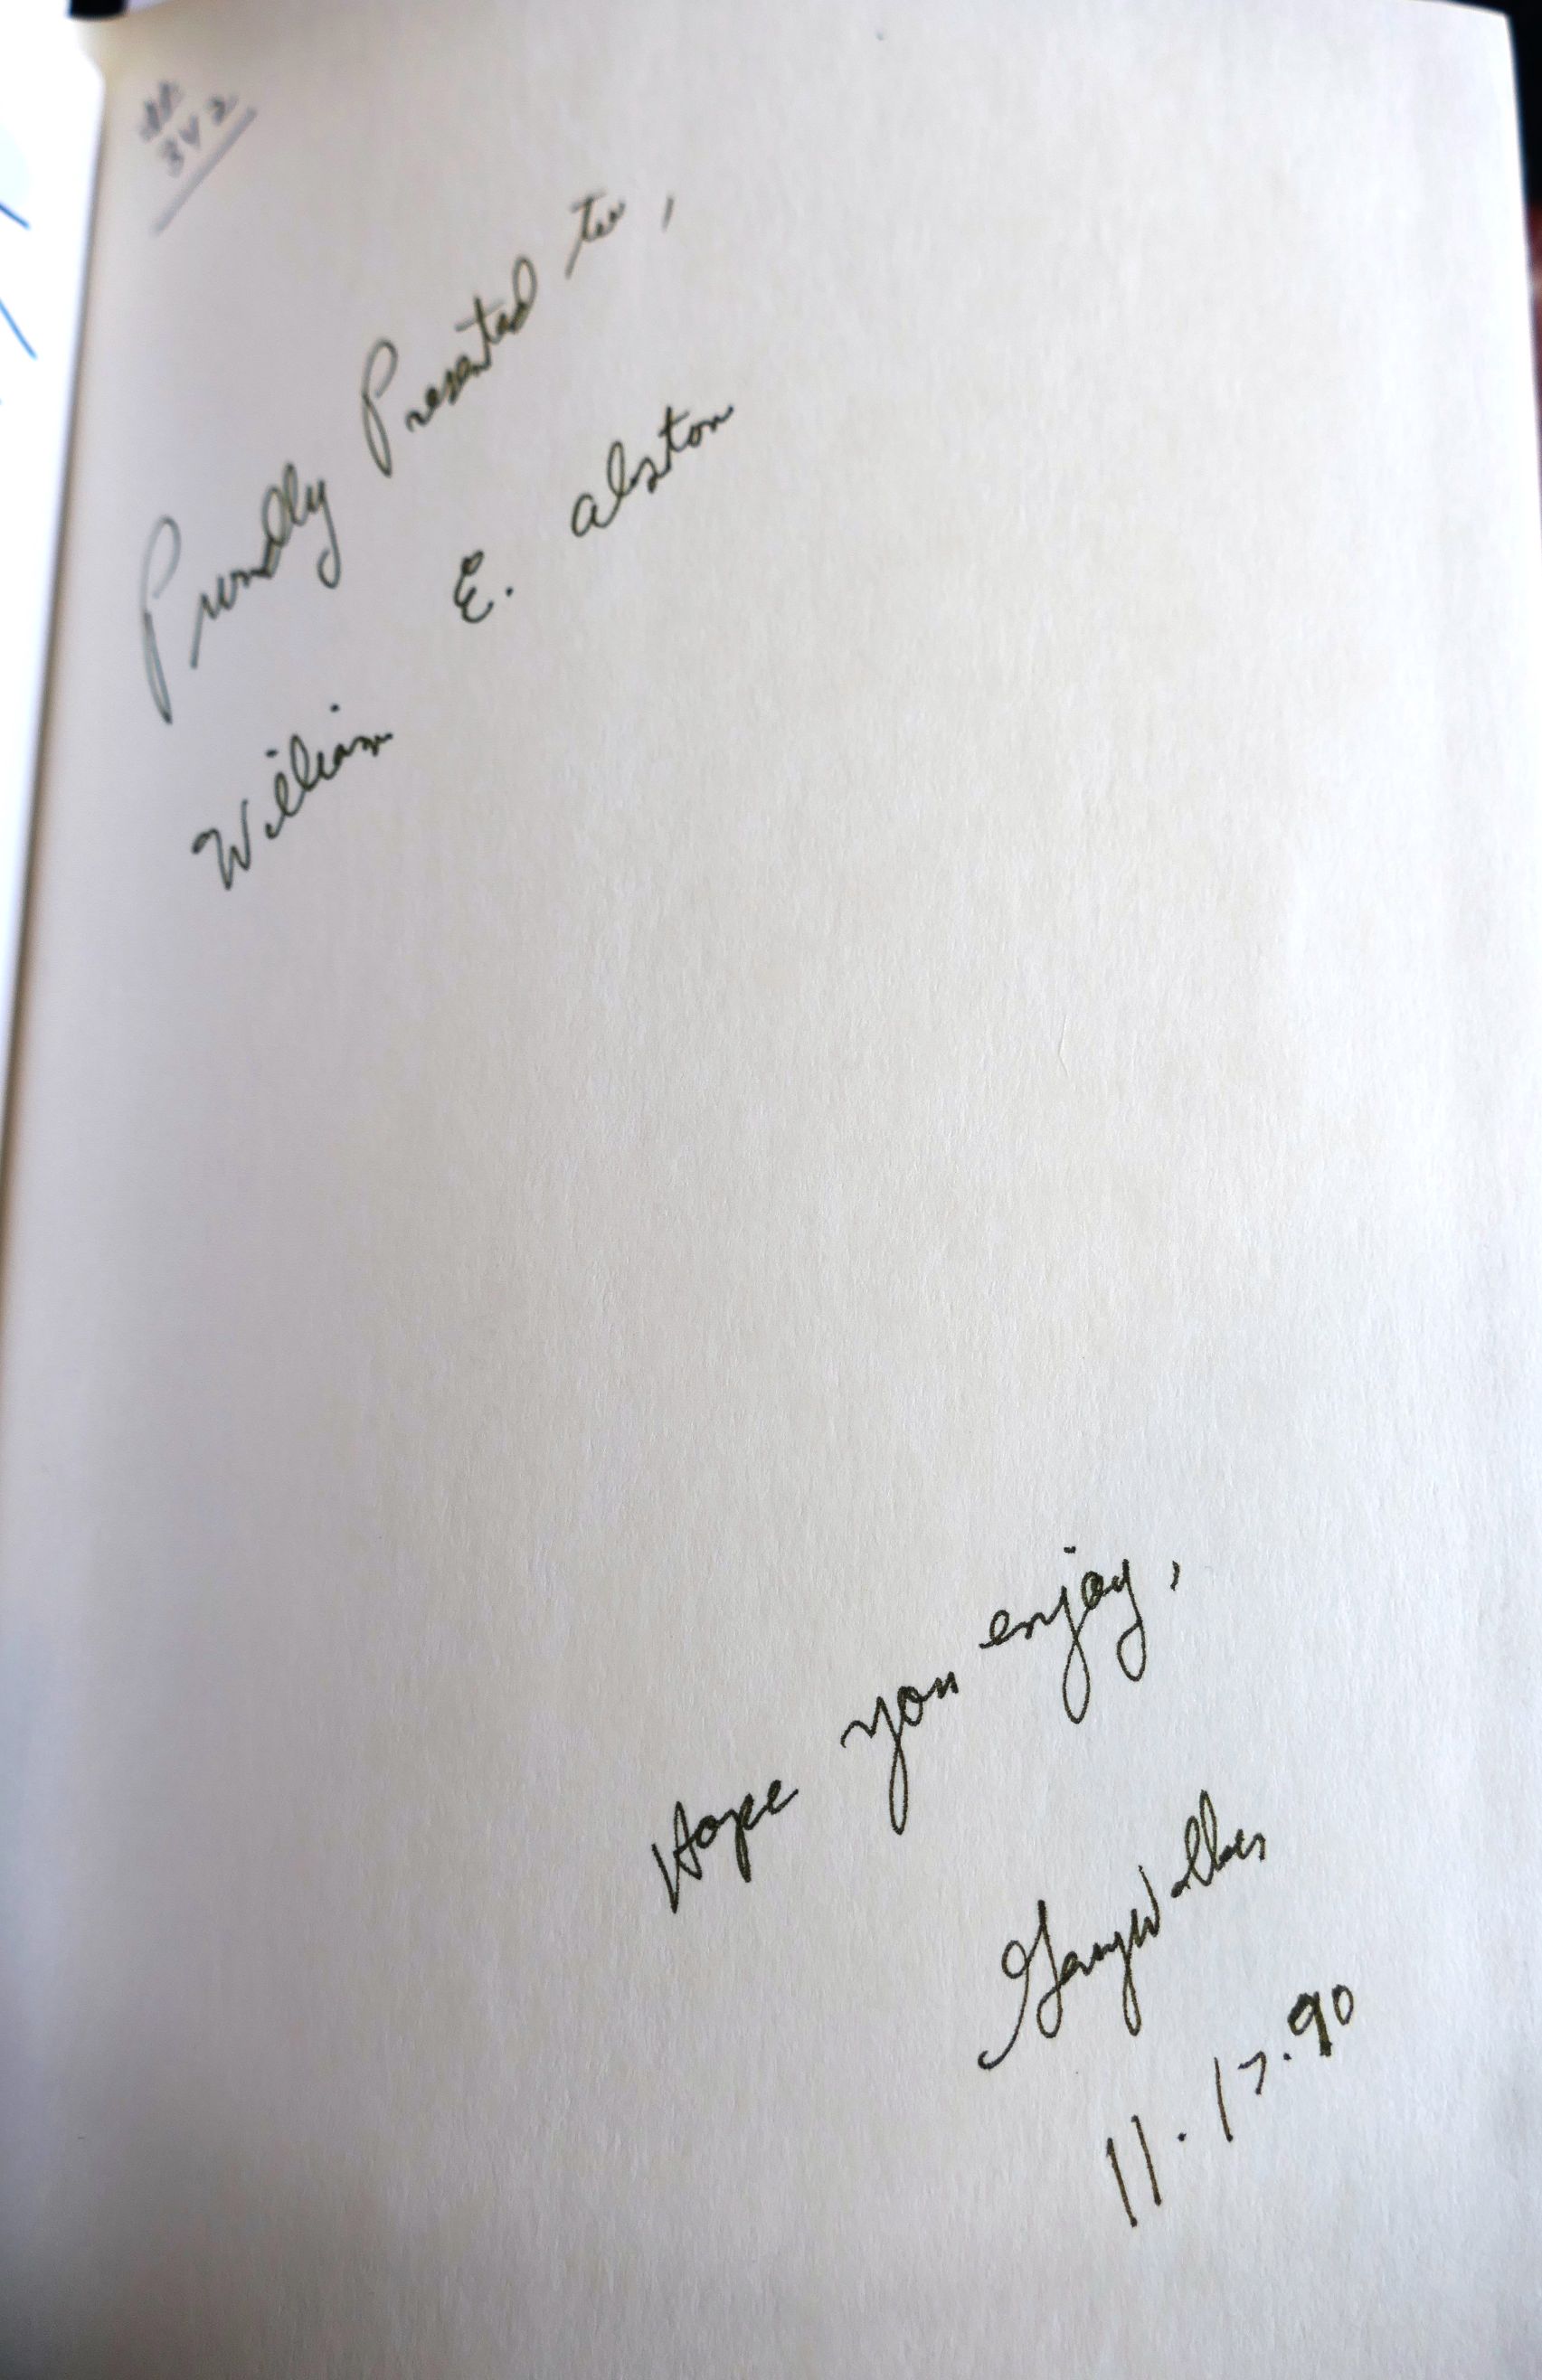 342
Proudly Presented to,
William E. Alston
Hope you enjoy,
Gary
11.17.90